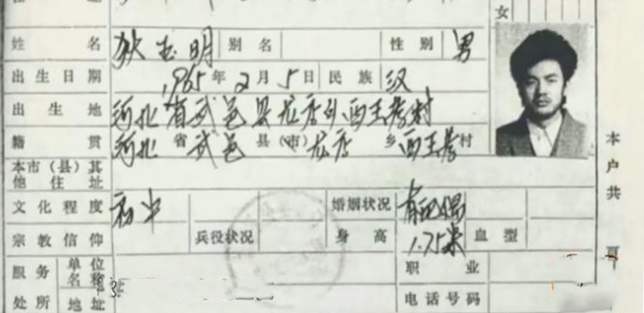 女
姓名 狄玉明 别名 性别 男
出生日期 1965年2月5日 民族 汉
出生地 河北省武邑县龙店乡西王孝村
籍贯 河北省武邑县(市)龙店乡西王孝村
本市（县）其他住址
文化程度 初中 婚姻状况 有配偶
宗教信仰 兵役状况 身高 1.75米 血型
服务处所 单位名称 职业
地址 电话号码
本户共 页